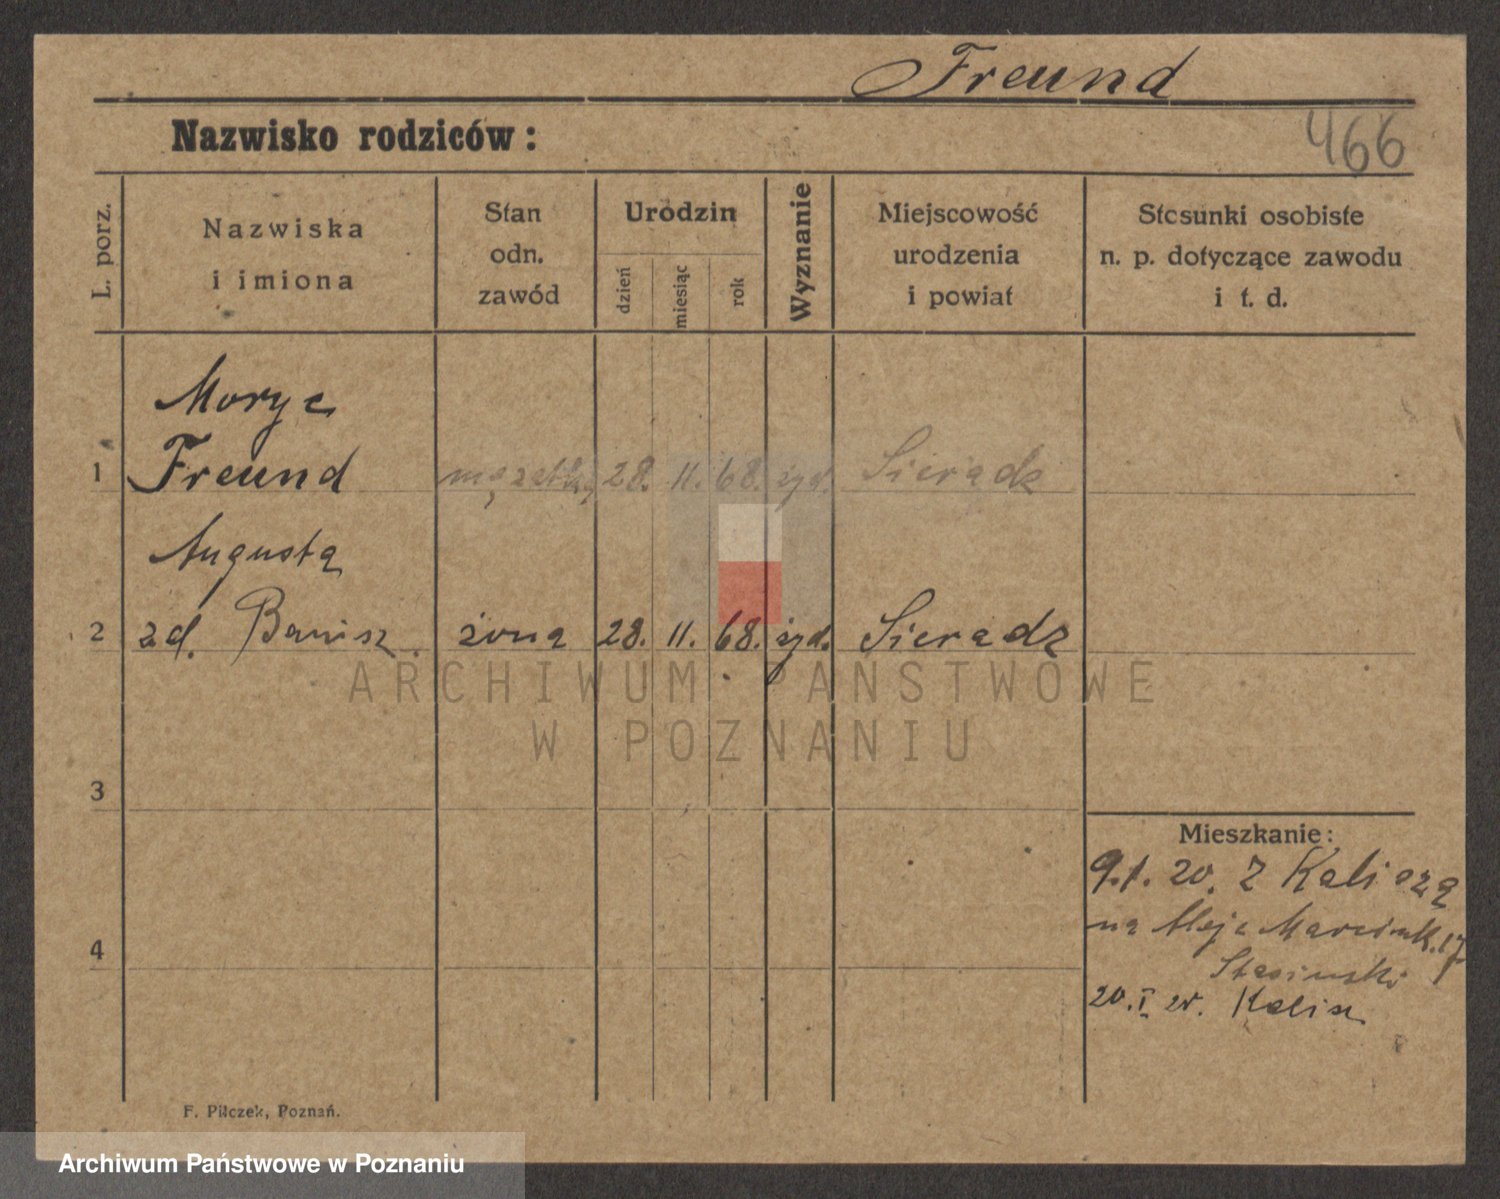 Freund
Nazwisko rodziców:
466
L. porz.
Nazwiska
i imiona
Stan
odn.
zawód
Urodzin
dzień
miesiąc
rok
Wyznanie
Miejscowość
urodzenia
i powiat
Stosunki osobiste
n. p. dotyczące zawodu
i t. d.
Moryc
1 Freund mężatka 28. 11. 68. żyd. Sieradz
Augusta
2 zd. Banisz żona 28. 11. 68. żyd. Sieradz
ARCHIWUM PAŃSTWOWE
W POZNANIU
3
Mieszkanie:
9.1. 20. z Kalisza
na Aleje Marcink. 17
4
Stasinski
20. I Kalisz
F. Pilczek, Poznań.
Archiwum Państwowe w Poznaniu